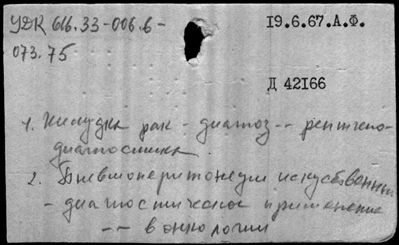 УДК 616.33-006.6-
073.75
19.6.67.А.Ф.
Д 42166
1. Желудка рак - диагноз -- рентгено-
диагностика.
2. Пневмоперитонеум искусственный
- диагностическое применение
-- в онкологии